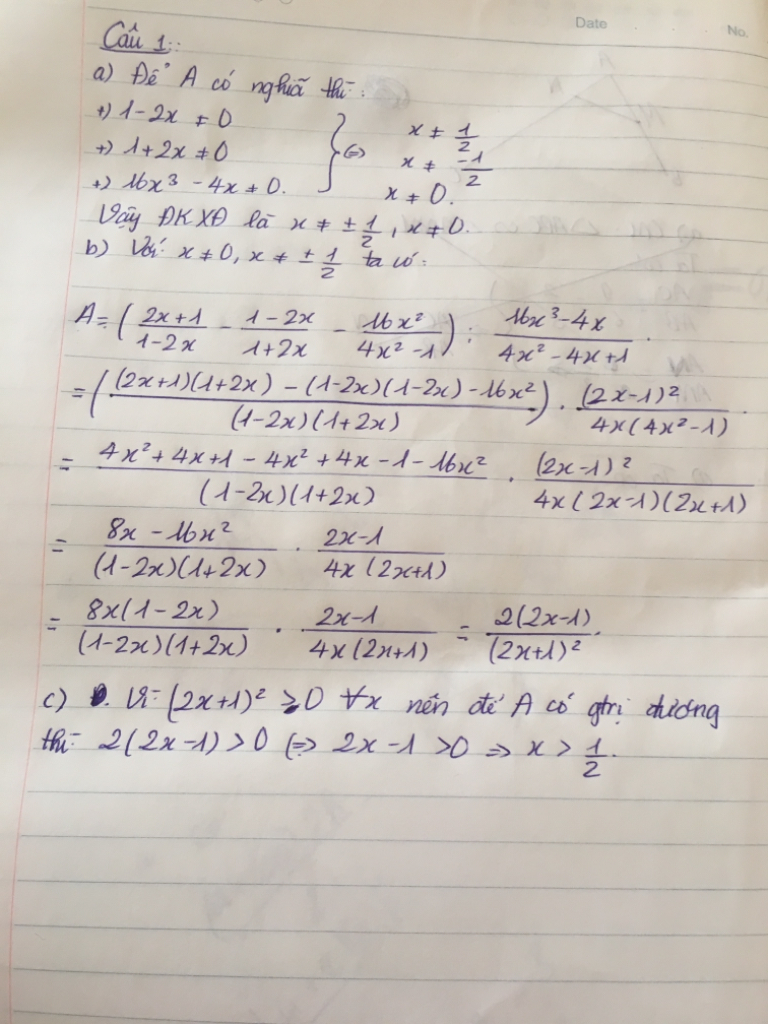 Date
No.
Câu 1:
a) Để A có nghĩa thì:
+) 1-2x ≠ 0
+) 1+2x ≠ 0 } (=) x ≠ 1/2
x ≠ -1/2
+) 16x³ - 4x ≠ 0. x ≠ 0.
Vậy ĐKXĐ là x ≠ ± 1/2, x ≠ 0.
b) Với x ≠ 0, x ≠ ± 1/2 ta có:
A = ( (2x+1)/(1-2x) - (1-2x)/(1+2x) - 16x²/(4x²-1) ) : (16x³-4x)/(4x²-4x+1).
= ( ((2x+1)(1+2x) - (1-2x)(1-2x) - 16x²)/((1-2x)(1+2x)) ) . (2x-1)²/(4x(4x²-1)).
= (4x²+4x+1-4x²+4x-1-16x²)/((1-2x)(1+2x)) . (2x-1)²/(4x(2x-1)(2x+1))
= (8x-16x²)/((1-2x)(1+2x)) . (2x-1)/(4x(2x+1))
= (8x(1-2x))/((1-2x)(1+2x)) . (2x-1)/(4x(2x+1)) = 2(2x-1)/(2x+1)².
c) Vì (2x+1)² ≥ 0 ∀x nên để A có gtrị dương
thì 2(2x-1) > 0 (=) 2x-1 > 0 => x > 1/2.